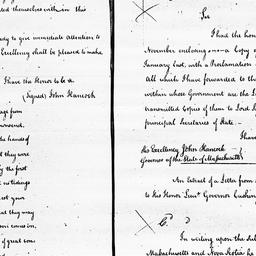 ted themselves with in this
dy to give immediate Attention to
Excellency shall be pleased to make
I have the Honor to be &
(Signed) John Hancock
age from
the hands of
t they were
by the first
no tidings
not given
at they may
come on,
of great conc
Sir
I had the hon
November enclosing a Copy of
January last, with a Proclamation
All which I have forwarded to th
within whose Government are the
transmitted Copies of them to Lord
principal Secretaries of State.
I have
His Excellency John Hancock
Governor of the State of Massachusetts
An Extract of a Letter from
to His Honor Lieut Governor Cushing
In writing upon the sub
Massachusetts and Nova Scotia he